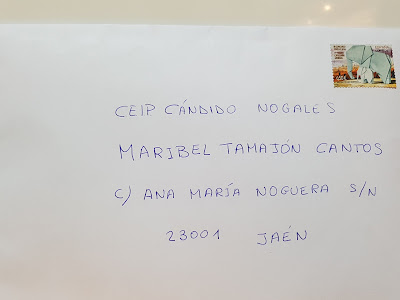 CEIP CÁNDIDO NOGALES
MARIBEL TAMAJÓN CANTOS
C) ANA MARÍA NOGUERA S/N
23001 JAÉN